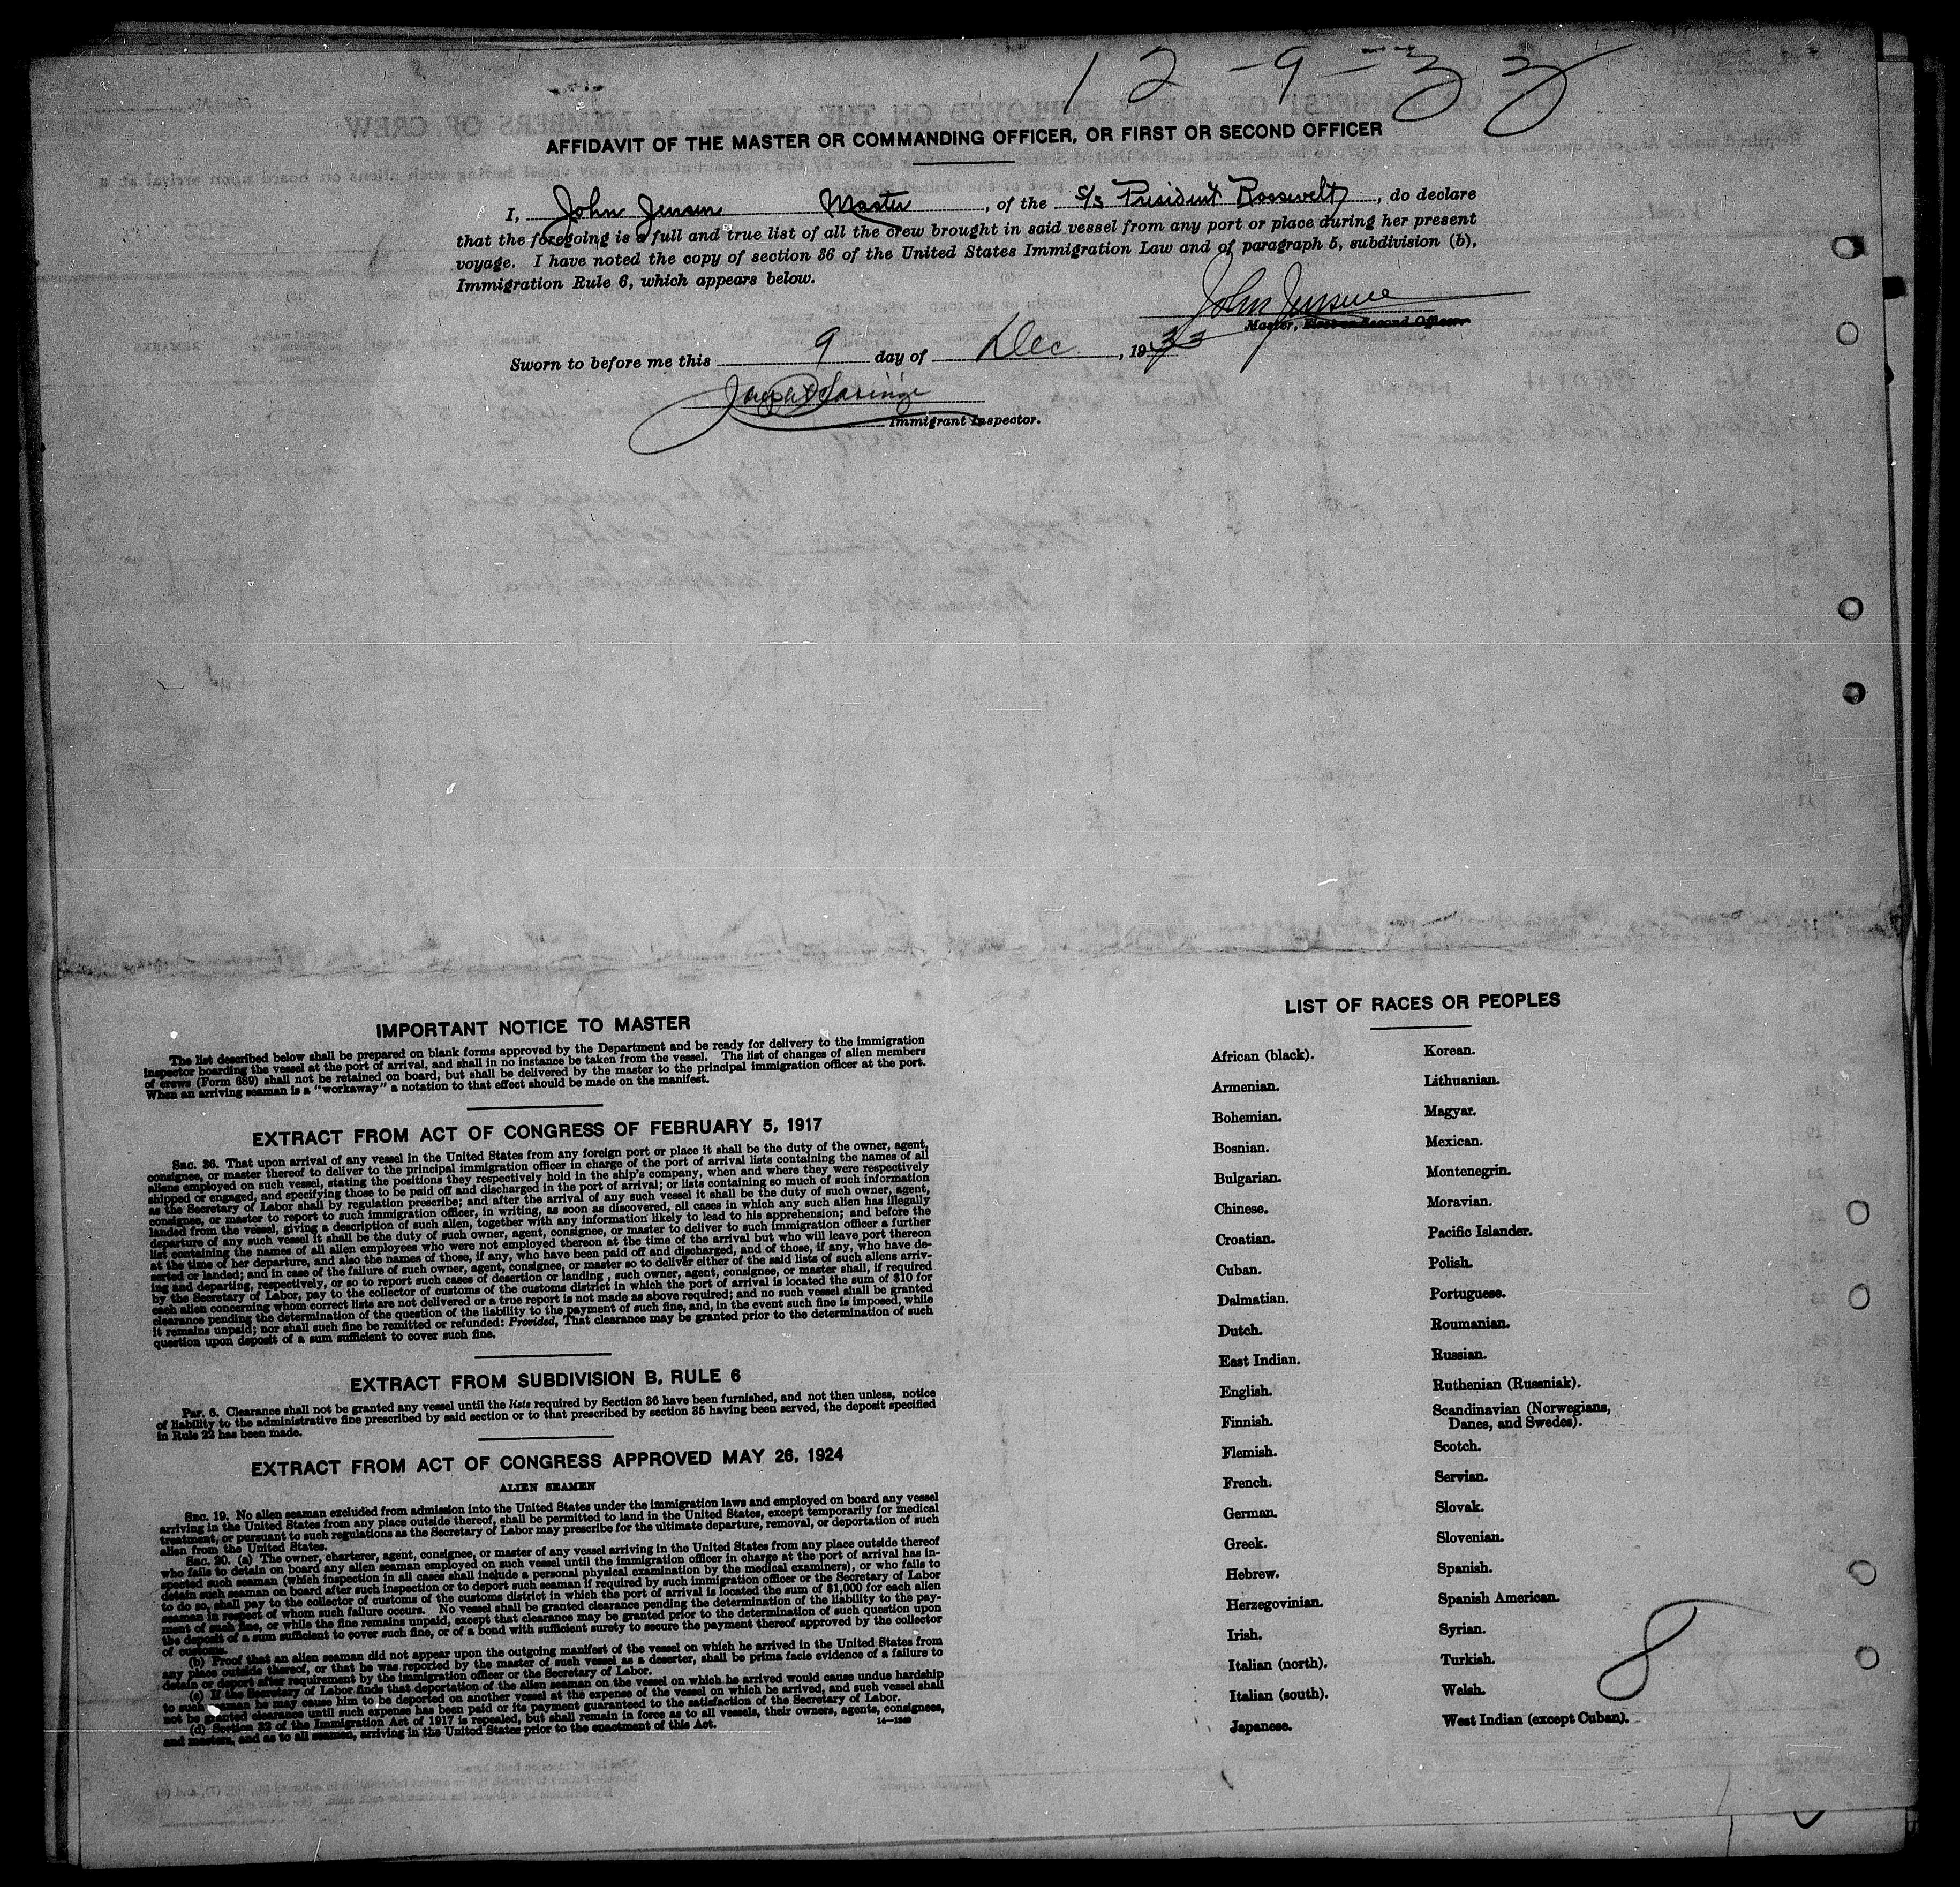 12-9-33
AFFIDAVIT OF THE MASTER OR COMMANDING OFFICER, OR FIRST OR SECOND OFFICER
I, John Jensen Master, of the S/S President Roosevelt, do declare
that the foregoing is a full and true list of all the crew brought in said vessel from any port or place during her present
voyage. I have noted the copy of section 36 of the United States Immigration Law and of paragraph 5, subdivision (b),
Immigration Rule 6, which appears below.
John Jensen
Master, First or Second Officer.
Sworn to before me this 9 day of Dec., 1933
Immigrant Inspector.
IMPORTANT NOTICE TO MASTER
The list described below shall be prepared on blank forms approved by the Department and be ready for delivery to the immigration
inspector boarding the vessel at the port of arrival, and shall in no instance be taken from the vessel. The list of changes of alien members
of crews (Form 689) shall not be retained on board, but shall be delivered by the master to the principal immigration officer at the port.
When an arriving seaman is a "workaway" a notation to that effect should be made on the manifest.
EXTRACT FROM ACT OF CONGRESS OF FEBRUARY 5, 1917
SEC. 36. That upon arrival of any vessel in the United States from any foreign port or place it shall be the duty of the owner, agent,
consignee, or master thereof to deliver to the principal immigration officer in charge of the port of arrival lists containing the names of all
aliens employed on such vessel, stating the positions they respectively hold in the ship's company, when and where they were respectively
shipped or engaged, and specifying those to be paid off and discharged in the port of arrival; or lists containing so much of such information
as the Secretary of Labor shall by regulation prescribe; and after the arrival of any such vessel it shall be the duty of such owner, agent,
consignee, or master to report to such immigration officer, in writing, as soon as discovered, all cases in which any such alien has illegally
landed from the vessel, giving a description of such alien, together with any information likely to lead to his apprehension; and before the
departure of any such vessel it shall be the duty of such owner, agent, consignee, or master to deliver to such immigration officer a further
list containing the names of all alien employees who were not employed thereon at the time of the arrival but who will leave port thereon
at the time of her departure, and also the names of those, if any, who have been paid off and discharged, and of those, if any, who have de-
serted or landed; and in case of the failure of such owner, agent, consignee, or master so to deliver either of the said lists of such aliens arriv-
ing and departing, respectively, or so to report such cases of desertion or landing, such owner, agent, consignee, or master shall, if required
by the Secretary of Labor, pay to the collector of customs of the customs district in which the port of arrival is located the sum of $10 for
each alien concerning whom correct lists are not delivered or a true report is not made as above required; and no such vessel shall be granted
clearance pending the determination of the question of the liability to the payment of such fine, and, in the event such fine is imposed, while
it remains unpaid; nor shall such fine be remitted or refunded: Provided, That clearance may be granted prior to the determination of such
question upon deposit of a sum sufficient to cover such fine.
EXTRACT FROM SUBDIVISION B, RULE 6
Par. 6. Clearance shall not be granted any vessel until the lists required by Section 36 have been furnished, and not then unless, notice
of liability to the administrative fine prescribed by said section or to that prescribed by section 35 having been served, the deposit specified
in Rule 22 has been made.
EXTRACT FROM ACT OF CONGRESS APPROVED MAY 26, 1924
ALIEN SEAMEN
SEC. 19. No alien seaman excluded from admission into the United States under the immigration laws and employed on board any vessel
arriving in the United States from any place outside thereof, shall be permitted to land in the United States, except temporarily for medical
treatment, or pursuant to such regulations as the Secretary of Labor may prescribe for the ultimate departure, removal, or deportation of such
alien from the United States.
SEC. 20. (a) The owner, charterer, agent, consignee, or master of any vessel arriving in the United States from any place outside thereof
who fails to detain on board any alien seaman employed on such vessel until the immigration officer in charge at the port of arrival has in-
spected such seaman (which inspection in all cases shall include a personal physical examination by the medical examiners), or who fails to
detain such seaman on board after such inspection or to deport such seaman if required by such immigration officer or the Secretary of Labor
to do so, shall pay to the collector of customs of the customs district in which the port of arrival is located the sum of $1,000 for each alien
seaman in respect of whom such failure occurs. No vessel shall be granted clearance pending the determination of the liability to the pay-
ment of such fine, or while the fine remains unpaid, except that clearance may be granted prior to the determination of such question upon
the deposit of a sum sufficient to cover such fine, or of a bond with sufficient surety to secure the payment thereof approved by the collector
of customs.
(b) Proof that an alien seaman did not appear upon the outgoing manifest of the vessel on which he arrived in the United States from
any place outside thereof, or that he was reported by the master of such vessel as a deserter, shall be prima facie evidence of a failure to
detain or deport after requirement by the immigration officer or the Secretary of Labor.
(c) If the Secretary of Labor finds that deportation of the alien seaman on the vessel on which he arrived would cause undue hardship
to such seaman he may cause him to be deported on another vessel at the expense of the vessel on which he arrived, and such vessel shall
not be granted clearance until such expense has been paid or its payment guaranteed to the satisfaction of the Secretary of Labor.
(d) Section 33 of the Immigration Act of 1917 is repealed, but shall remain in force as to all vessels, their owners, agents, consignees,
and masters, and as to all seamen, arriving in the United States prior to the enactment of this Act.
LIST OF RACES OR PEOPLES
African (black).
Armenian.
Bohemian.
Bosnian.
Bulgarian.
Chinese.
Croatian.
Cuban.
Dalmatian.
Dutch.
East Indian.
English.
Finnish.
Flemish.
French.
German.
Greek.
Hebrew.
Herzegovinian.
Irish.
Italian (north).
Italian (south).
Japanese.
Korean.
Lithuanian.
Magyar.
Mexican.
Montenegrin.
Moravian.
Pacific Islander.
Polish.
Portuguese.
Roumanian.
Russian.
Ruthenian (Russniak).
Scandinavian (Norwegians,
Danes, and Swedes).
Scotch.
Servian.
Slovak.
Slovenian.
Spanish.
Spanish American.
Syrian.
Turkish.
Welsh.
West Indian (except Cuban).
8